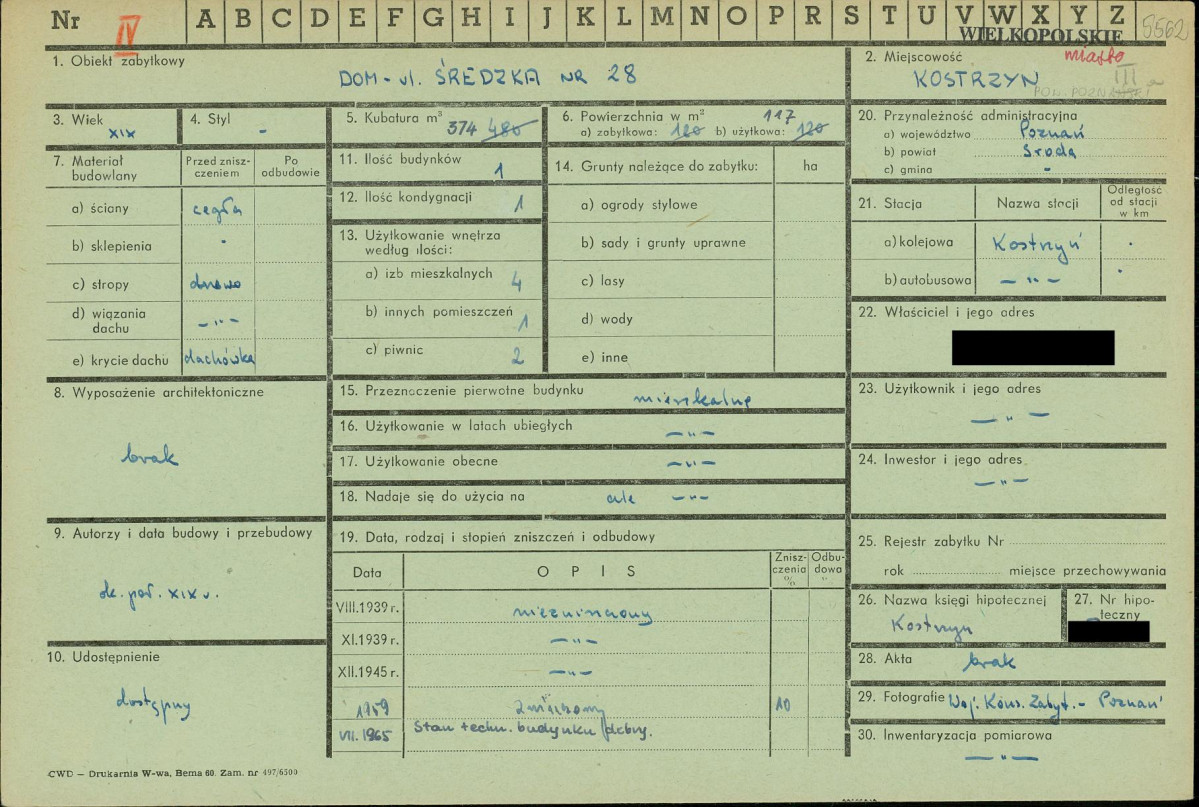 Nr IV A B C D E F G H I J K L M N O P R S T U V W X Y Z 5562
WIELKOPOLSKIE
1. Obiekt zabytkowy
DOM - ul. ŚREDZKA NR 28
2. Miejscowość miasto
KOSTRZYN III
POW. POZNAŃSKI
3. Wiek
XIX
4. Styl
-
5. Kubatura m³
374 480
6. Powierzchnia w m² 117
a) zabytkowa: 120 b) użytkowa: 120
20. Przynależność administracyjna
a) województwo Poznań
b) powiat Środa
c) gmina -
7. Materiał budowlany
Przed zniszczeniem
Po odbudowie
a) ściany cegła
b) sklepienia -
c) stropy drewo
d) wiązania dachu -„-
e) krycie dachu dachówka
11. Ilość budynków
1
12. Ilość kondygnacji
1
13. Użytkowanie wnętrza
według ilości:
a) izb mieszkalnych 4
b) innych pomieszczeń 1
c) piwnic 2
14. Grunty należące do zabytku: ha
a) ogrody stylowe
b) sady i grunty uprawne
c) lasy
d) wody
e) inne
21. Stacja
Nazwa stacji
Odległość od stacji w km
a) kolejowa Kostrzyń .
b) autobusowa -„- .
22. Właściciel i jego adres
8. Wyposażenie architektoniczne
brak
15. Przeznaczenie pierwotne budynku mieszkalne
16. Użytkowanie w latach ubiegłych -„-
17. Użytkowanie obecne -„-
18. Nadaje się do użycia na cele -„-
23. Użytkownik i jego adres
-„-
24. Inwestor i jego adres
-„-
9. Autorzy i data budowy i przebudowy
ok. poł. XIX w.
10. Udostępnienie
dostępny
19. Data, rodzaj i stopień zniszczeń i odbudowy
Data
OPIS
Zniszczenia %
Odbudowa "
VIII.1939 r. niezniszczony
XI.1939 r. -„-
XII.1945 r. -„-
1959 zniszczony 10
VII.1965 Stan techn. budynku dobry.
25. Rejestr zabytku Nr
rok miejsce przechowywania
26. Nazwa księgi hipotecznej
Kostrzyn
27. Nr hipoteczny
28. Akta brak
29. Fotografie Woj. Kons. Zabyt. - Poznań
30. Inwentaryzacja pomiarowa
-„-
CWD — Drukarnia W-wa, Bema 60. Zam. nr 497/6500